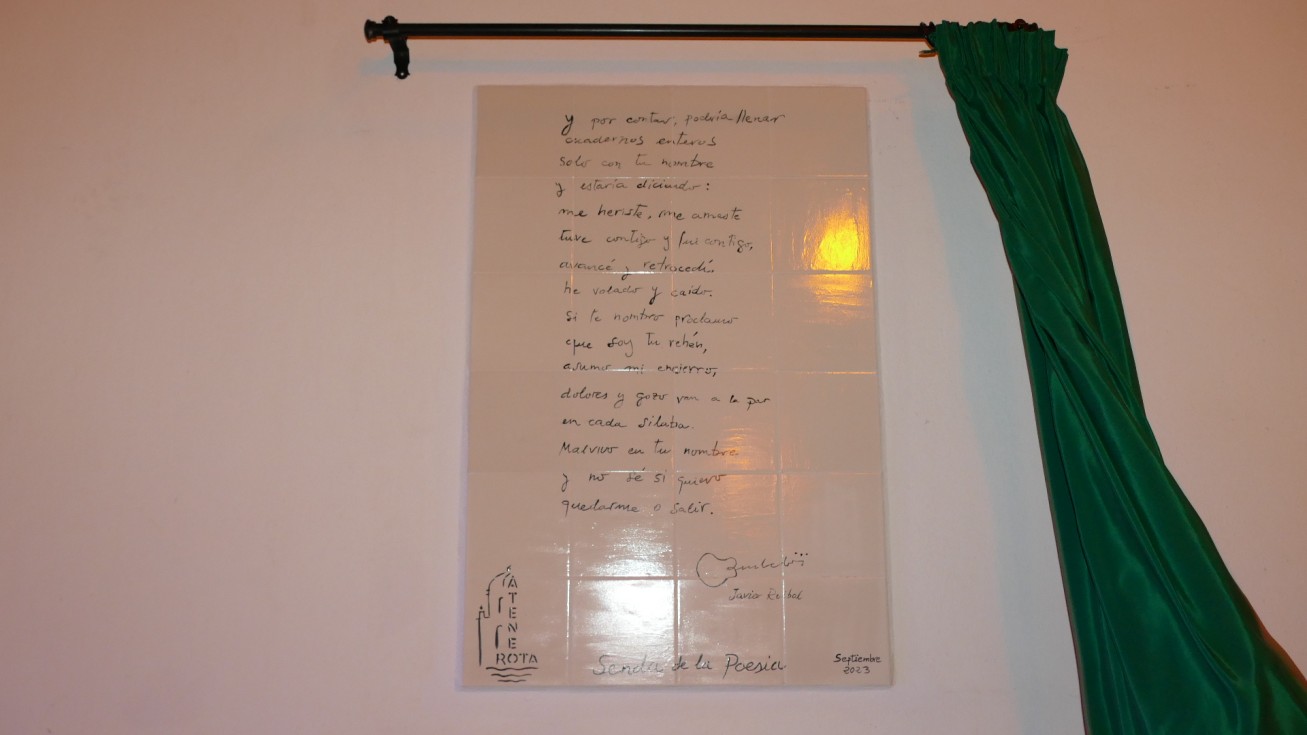 y por contar, podría llenar
cuadernos enteros
solo con tu nombre
y estaría diciendo:
me heriste, me amaste
tuve contigo y fui contigo,
avancé y retrocedí.
he volado y caído.
Si te nombro proclamo
que soy tu rehén,
asumo mi encierro,
dolores y gozo van a la par
en cada sílaba.
Malvivo en tu nombre
y no sé si quiero
quedarme o salir.
Javier Ruibal
ATENE
ROTA
Senda de la Poesia
Septiembre
2023